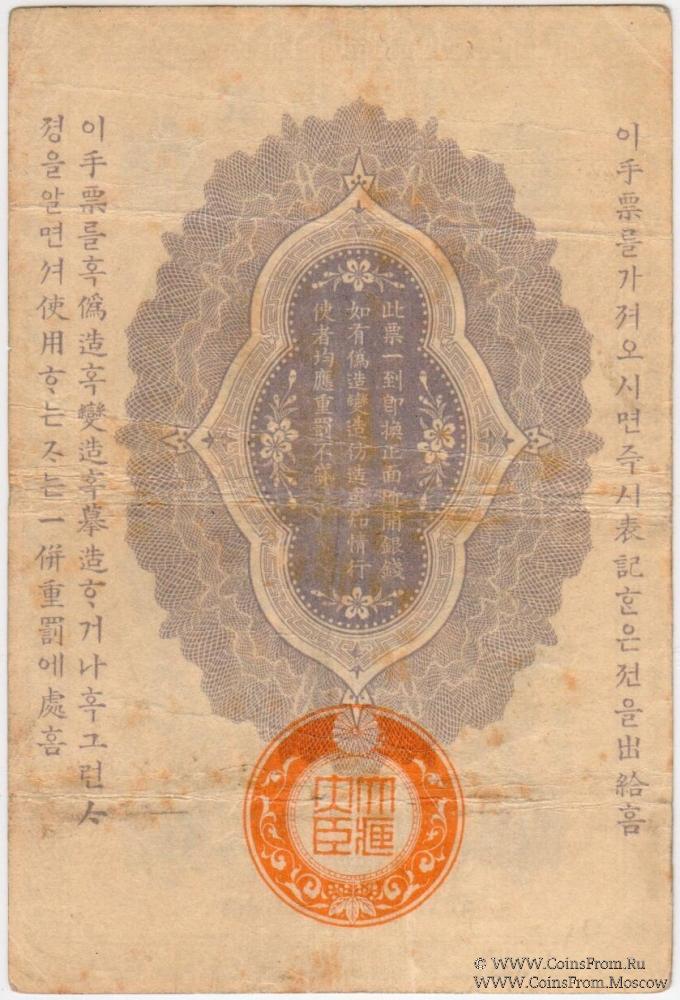 이手票를가져오시면주시表記ᄒᆞᆫ은젼을出給홈
此票一到即換正面所開銀錢
如有偽造變造彷造並知情行
使者均應重罰不貸
이手票를혹僞造혹變造혹摹造ᄒᆞ거나혹그런ᄉᆞ
졍을알면셔使用ᄒᆞ는ᄌᆞ는一併重罰에處홈
大藏
大臣
© WWW.CoinsFrom.Ru
WWW.CoinsFrom.Moscow